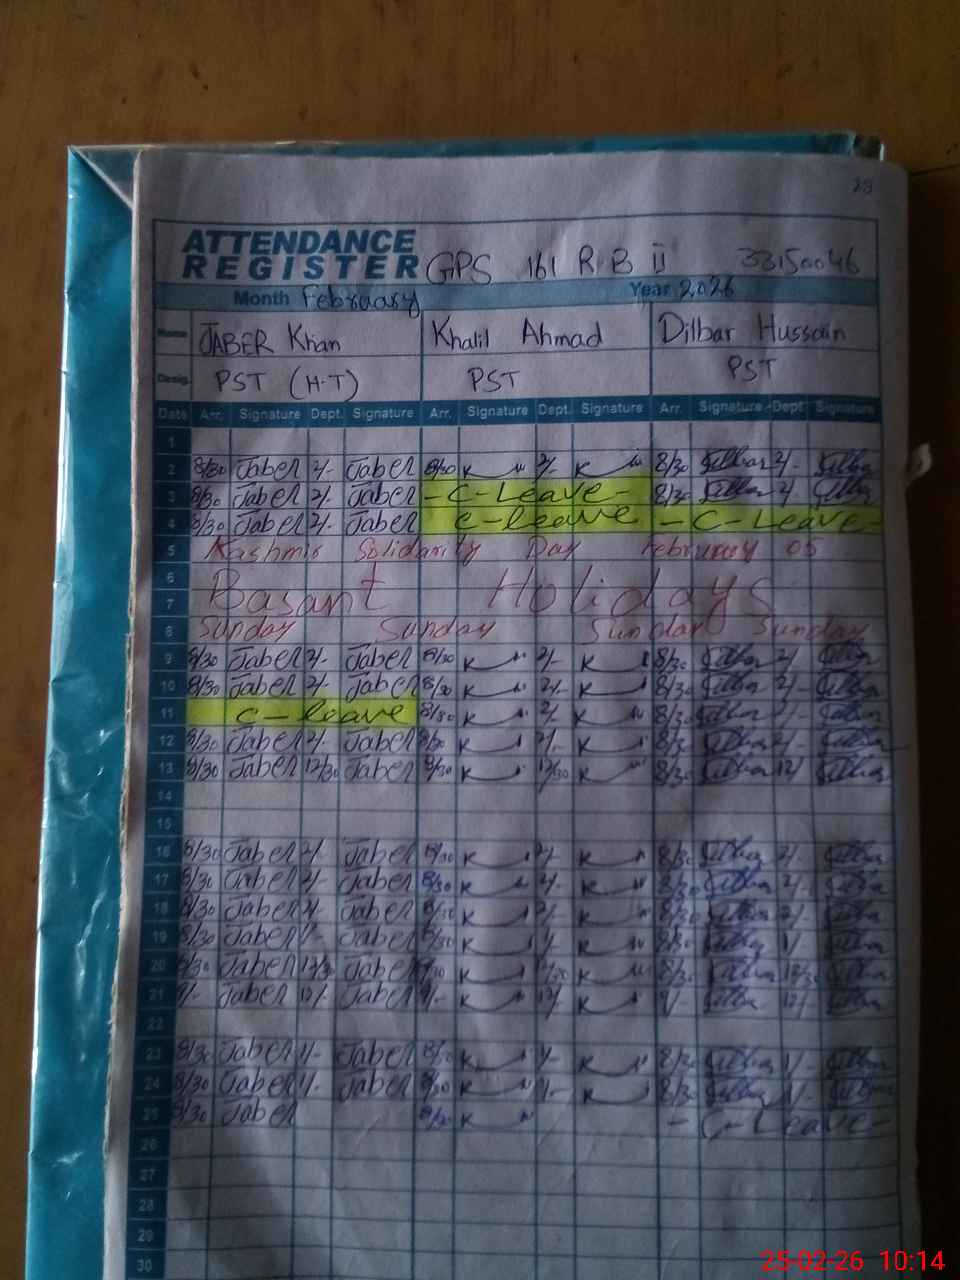 28
ATTENDANCE
REGISTER GPS 161 R B ii 33150046
Month February Year 2026
Name JABER Khan Khalil Ahmad Dilbar Hussain
Desig. PST (H-T) PST PST
Date Arr. Signature Dept. Signature Arr. Signature Dept. Signature Arr. Signature Dept. Signature
1
2 8/30 Jaber 2/- Jaber 8/30 K 2/- K 8/30 Dilbar 2/- Dilbar
3 8/30 Jaber 2/- Jaber - C - Leave - 8/30 Dilbar 2/- Dilbar
4 8/30 Jaber 2/- Jaber C - leave - C - Leave -
5 Kashmir Solidarity Day February 05
6
7 Basant Holidays
8 Sunday Sunday Sunday Sunday
9 8/30 Jaber 2/- Jaber 8/30 K 2/- K 8/30 Dilbar 2/- Dilbar
10 8/30 Jaber 2/- Jaber 8/30 K 2/- K 8/30 Dilbar 2/- Dilbar
11 C - leave 8/30 K 2/- K 8/30 Dilbar Dilbar
12 8/30 Jaber 2/- Jaber 8/30 K 2/- K 8/30 Dilbar 2/- Dilbar
13 8/30 Jaber 12/30 Jaber 8/30 K 12/30 K 8/30 Dilbar 12/ Dilbar
14
15
16 8/30 Jaber 2/- Jaber 8/30 K 2/- K 8/30 Dilbar 2/- Dilbar
17 8/30 Jaber 2/- Jaber 8/30 K 2/- K 8/30 Dilbar 2/- Dilbar
18 8/30 Jaber 2/- Jaber 8/30 K 2/- K 8/30 Dilbar 2/- Dilbar
19 8/30 Jaber 1/- Jaber 8/30 K 1/- K 8/30 Dilbar 1/- Dilbar
20 8/30 Jaber 12/30 Jaber 8/30 K 12/30 K 8/30 Dilbar 12/30 Dilbar
21 9/- Jaber 12/- Jaber 9/- K 12/- K 9/- Dilbar 12/- Dilbar
22
23 8/30 Jaber 1/- Jaber 8/30 K 1/- K 8/30 Dilbar 1/- Dilbar
24 8/30 Jaber 1/- Jaber 8/30 K 1/- K 8/30 Dilbar 1/- Dilbar
25 8/30 Jaber 8/30 K - C - Leave -
26
27
28
29
30
25-02-26 10:14